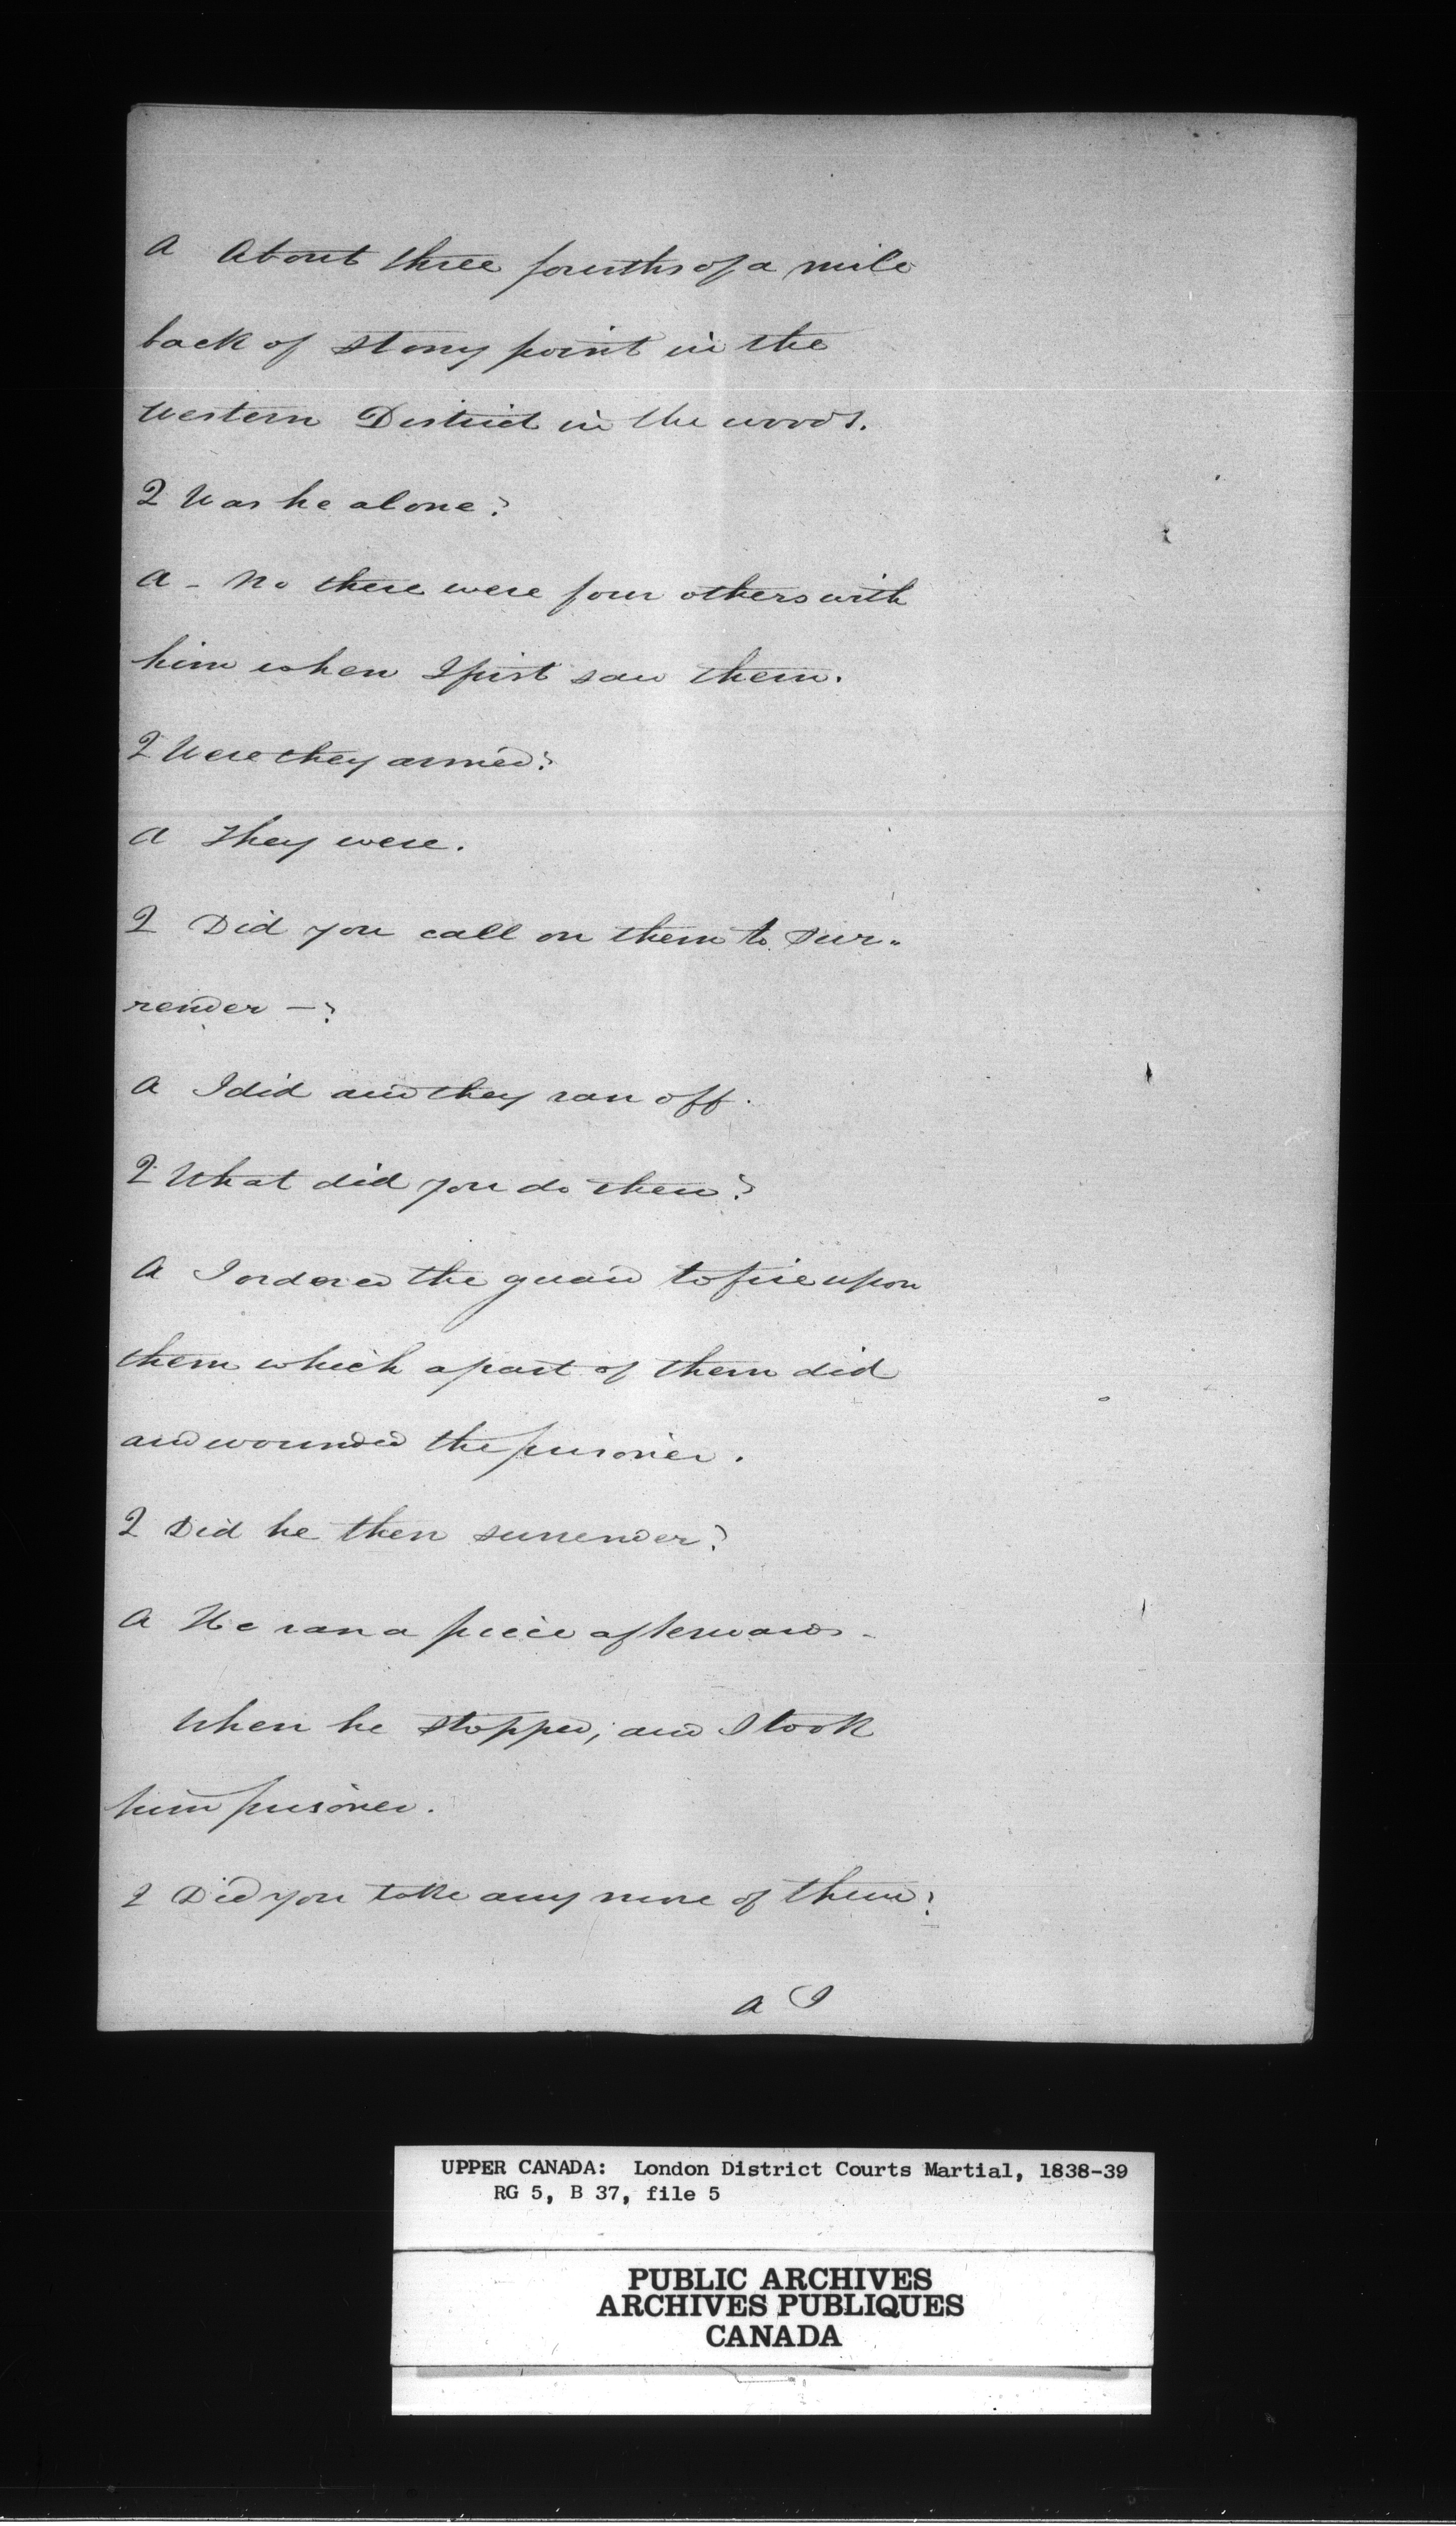 A About three fourths of a mile
back of stony point in the
Western District in the woods.
Q Was he alone?
A - No there were four others with
him when I first saw them.
Q Were they armed?
A They were.
Q Did you call on them to sur„
render —?
A I did and they ran off.
Q What did you do then?
A I ordered the guard to fire upon
them which a part of them did
and wounded the prisoner.
Q Did he then surrender?
A He ran a piece afterwards -
When he stopped, and I took
him prisoner.
Q Did you take any more of them?
A I
UPPER CANADA: London District Courts Martial, 1838-39
RG 5, B 37, file 5
PUBLIC ARCHIVES
ARCHIVES PUBLIQUES
CANADA